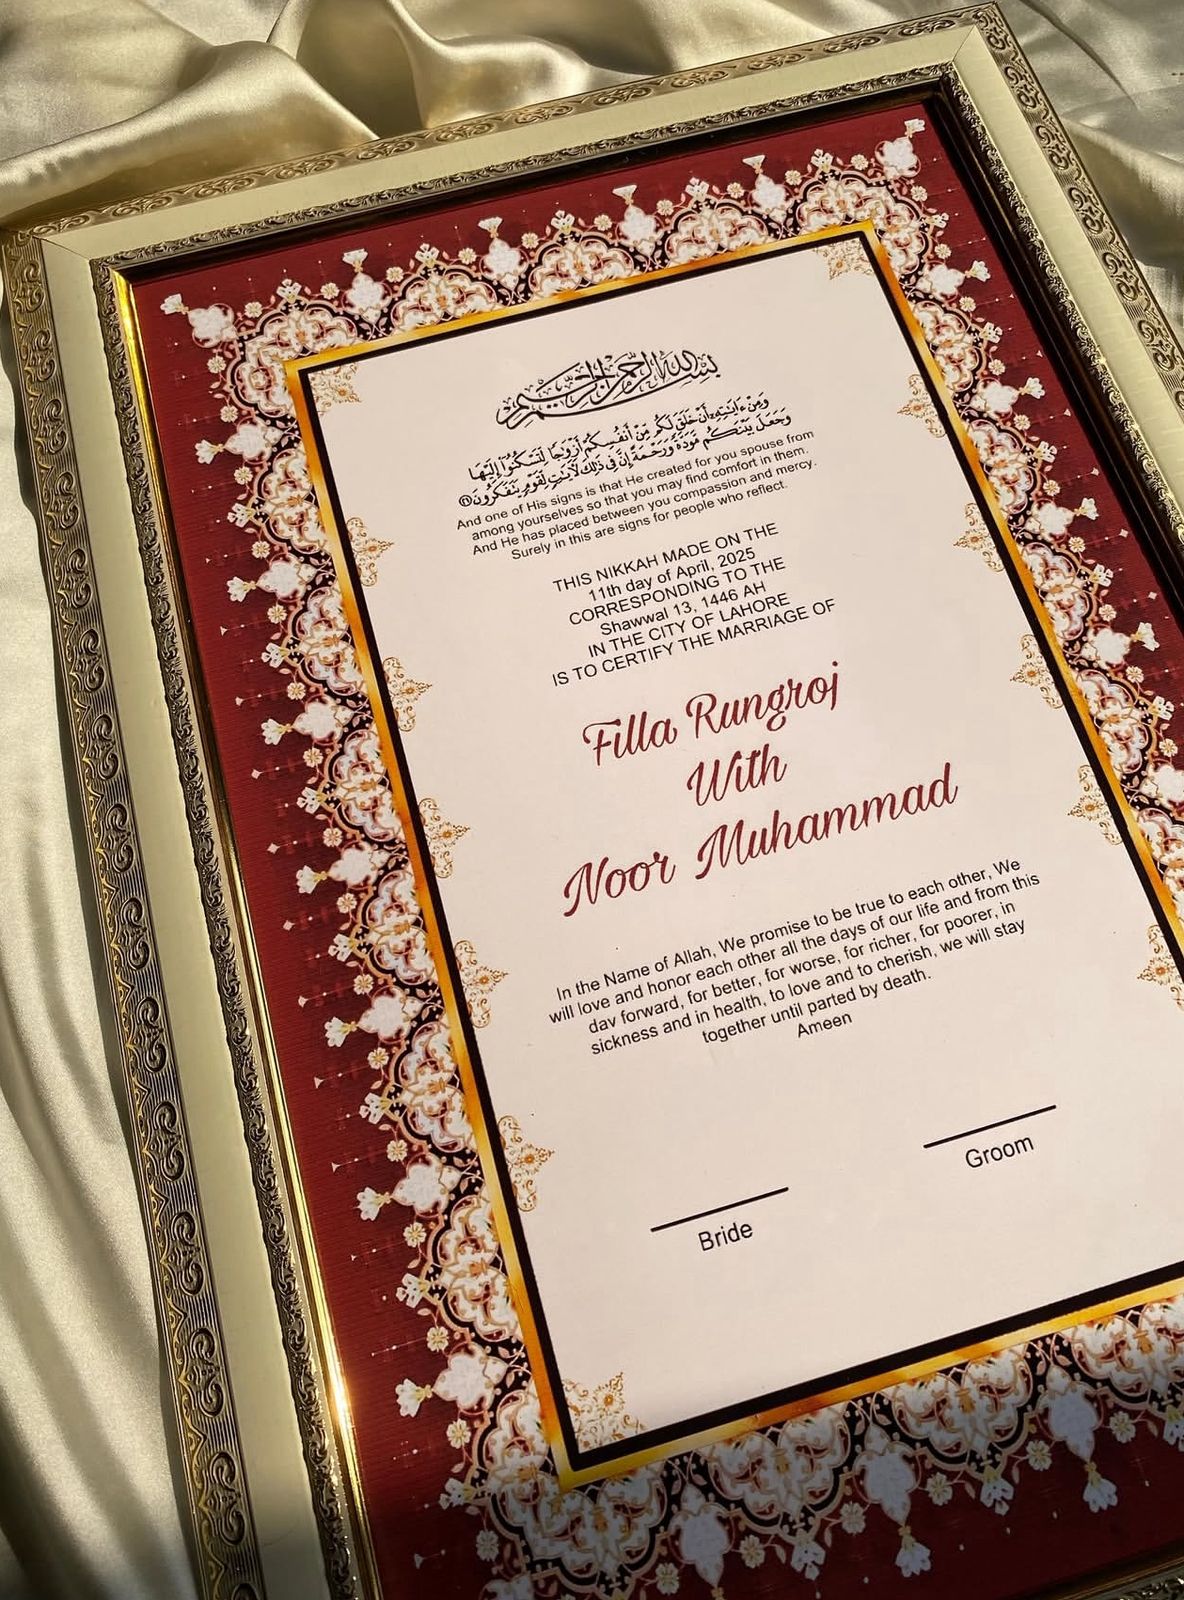 بسم الله الرحمن الرحيم
وَمِنْ ءَايَٰتِهِۦٓ أَنْ خَلَقَ لَكُم مِّنْ أَنفُسِكُمْ أَزْوَٰجًا لِّتَسْكُنُوٓا۟ إِلَيْهَا
وَجَعَلَ بَيْنَكُم مَّوَدَّةً وَرَحْمَةً إِنَّ فِى ذَٰلِكَ لَءَايَٰتٍ لِّقَوْمٍ يَتَفَكَّرُونَ ٢١
And one of His signs is that He created for you spouse from
among yourselves so that you may find comfort in them.
And He has placed between you compassion and mercy.
Surely in this are signs for people who reflect.
THIS NIKKAH MADE ON THE
11th day of April, 2025
CORRESPONDING TO THE
Shawwal 13, 1446 AH
IN THE CITY OF LAHORE
IS TO CERTIFY THE MARRIAGE OF
Filla Rungroj
With
Noor Muhammad
In the Name of Allah, We promise to be true to each other, We
will love and honor each other all the days of our life and from this
day forward, for better, for worse, for richer, for poorer, in
sickness and in health, to love and to cherish, we will stay
together until parted by death.
Ameen
Groom
Bride